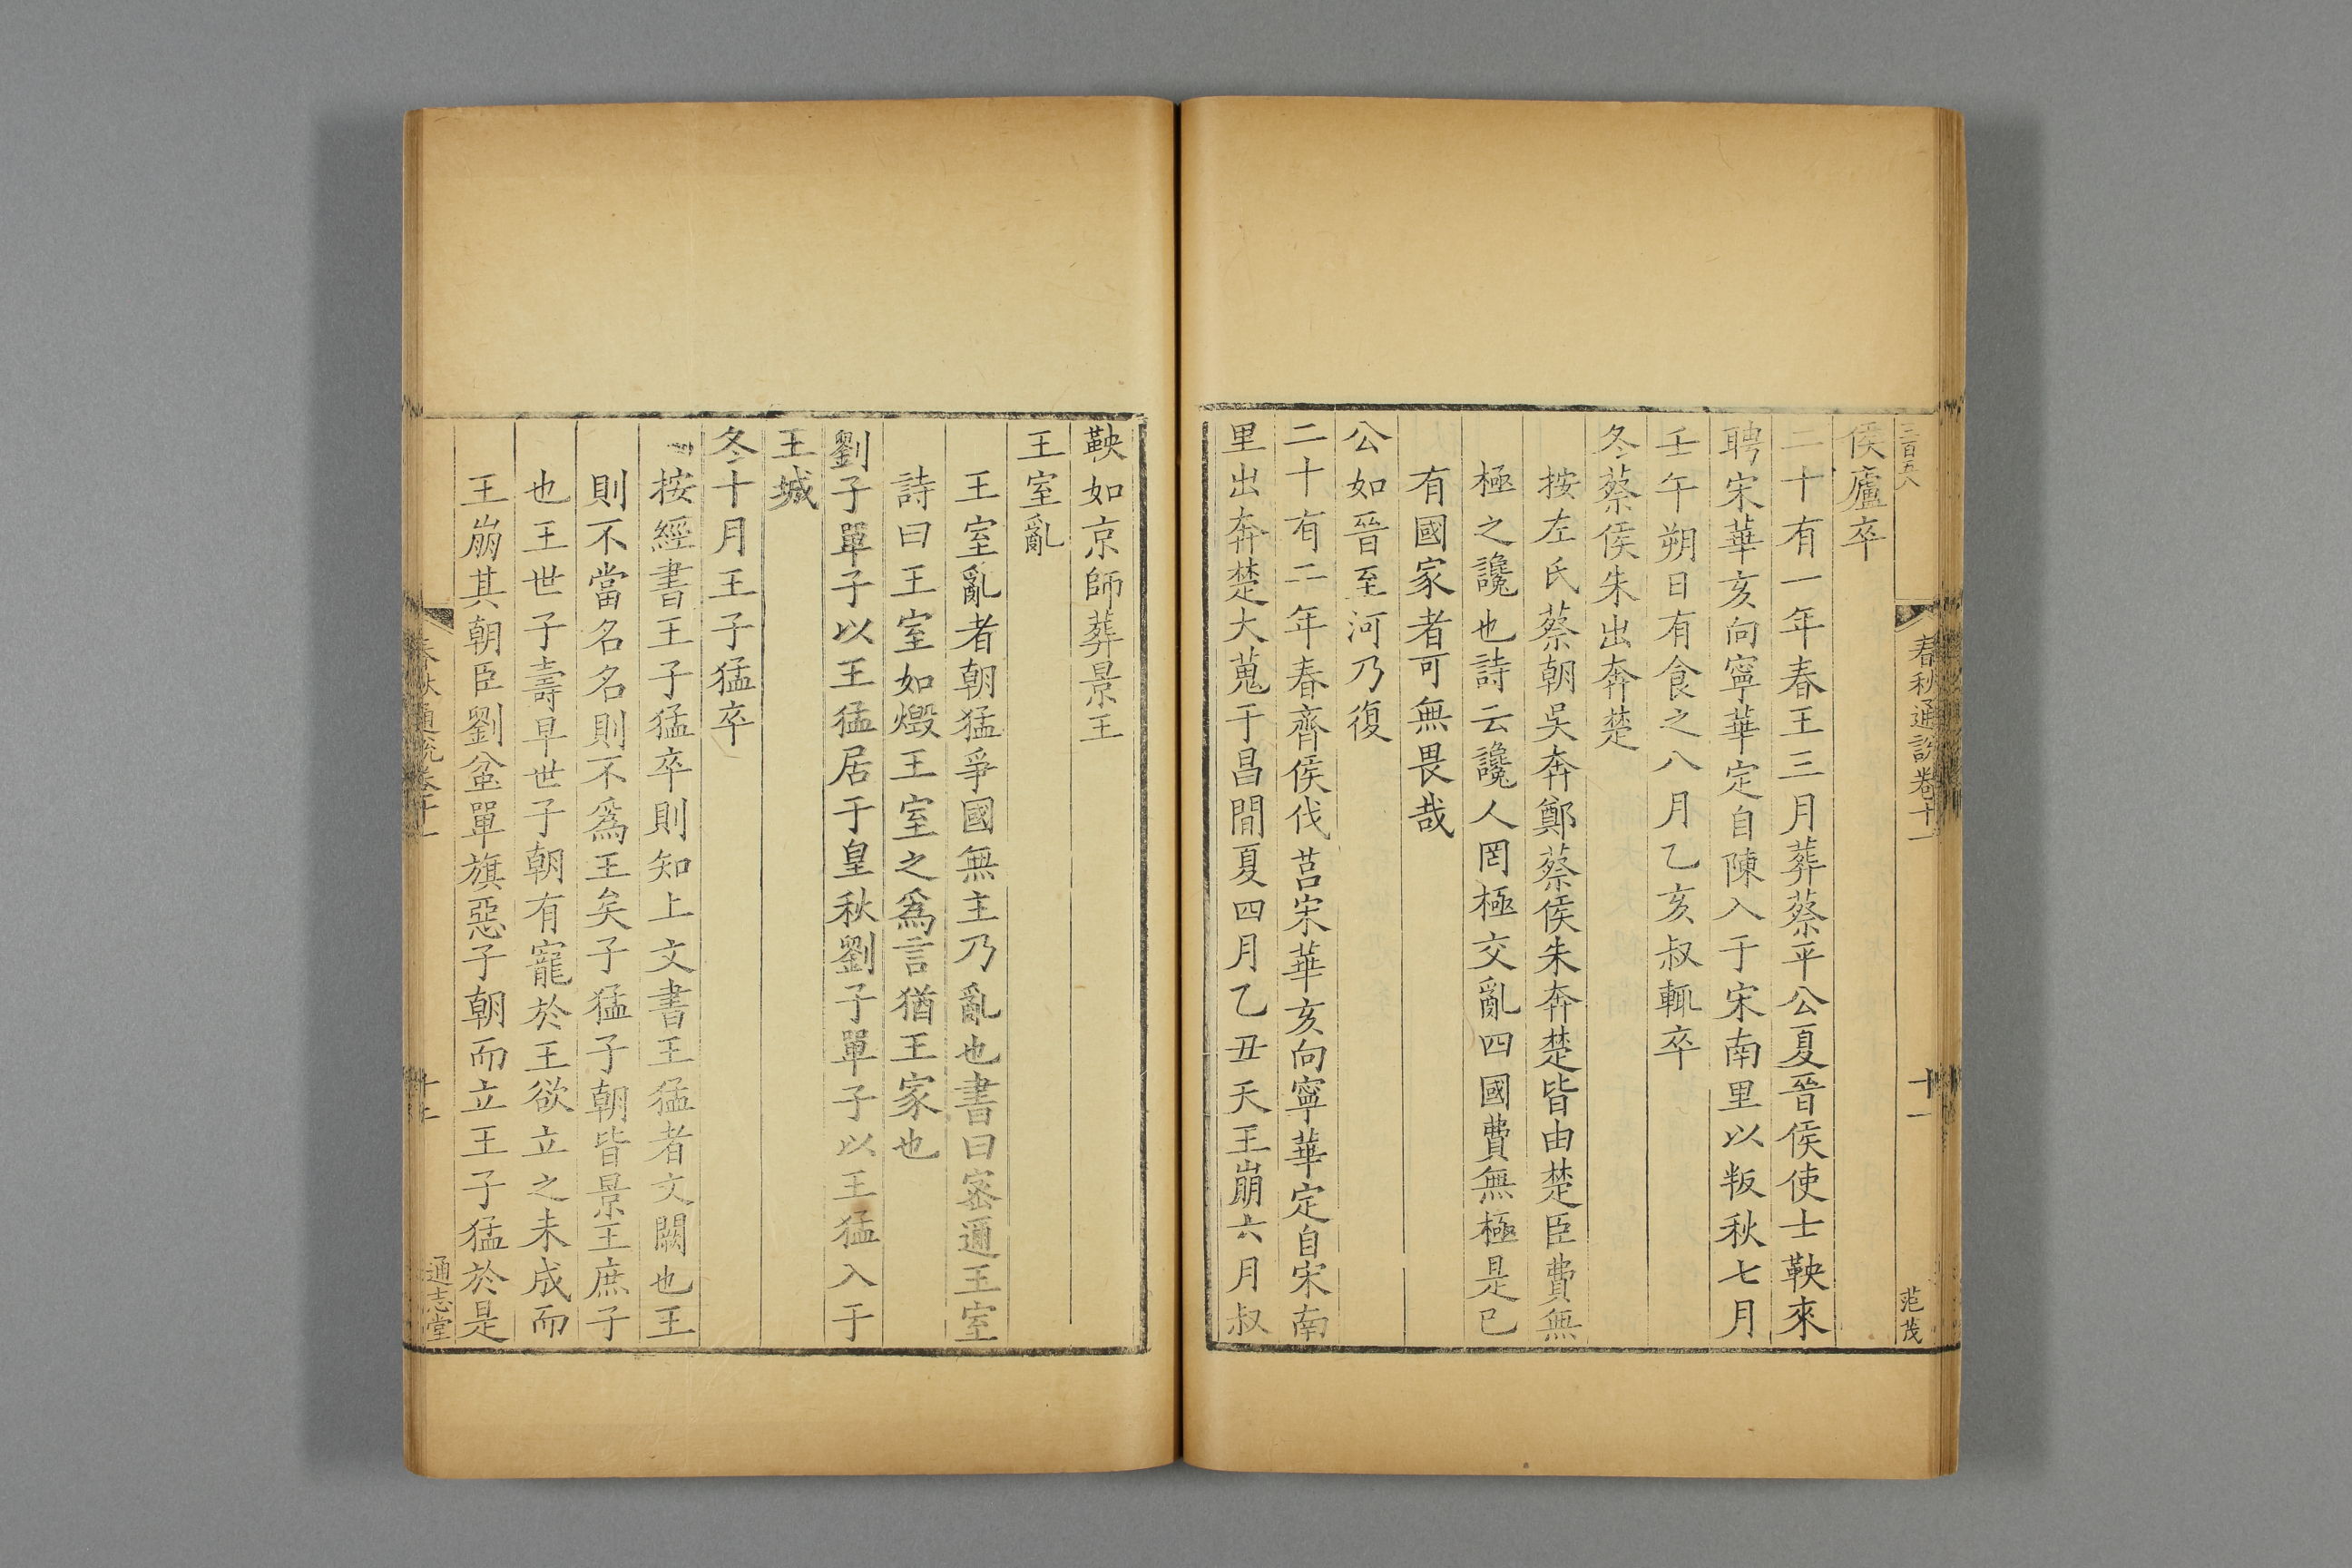 二百五八
春秋通說卷十一
十一
范茂
侯廬卒
二十有一年春王三月葬蔡平公夏晉侯使士鞅來
聘宋華亥向寧華定自陳入于宋南里以叛秋七月
壬午朔日有食之八月乙亥叔輒卒
冬蔡侯朱出奔楚
按左氏蔡朝吳奔鄭蔡侯朱奔楚皆由楚臣費無
極之讒也詩云讒人罔極交亂四國費無極是已
有國家者可無畏哉
公如晉至河乃復
二十有二年春齊侯伐莒宋華亥向寧華定自宋南
里出奔楚大蒐于昌間夏四月乙丑天王崩六月叔
鞅如京師葬景王
王室亂
王室亂者朝猛爭國無主乃亂也書曰密邇王室
詩曰王室如燬王室之爲言猶王家也
劉子單子以王猛居于皇秋劉子單子以王猛入于
王城
冬十月王子猛卒
按經書王子猛卒則知上文書王猛者文闕也王
則不當名名則不爲王矣子猛子朝皆景王庶子
也王世子壽早世子朝有寵於王欲立之未成而
王崩其朝臣劉蚠單旗惡子朝而立王子猛於是
春秋通說卷十一
通志堂